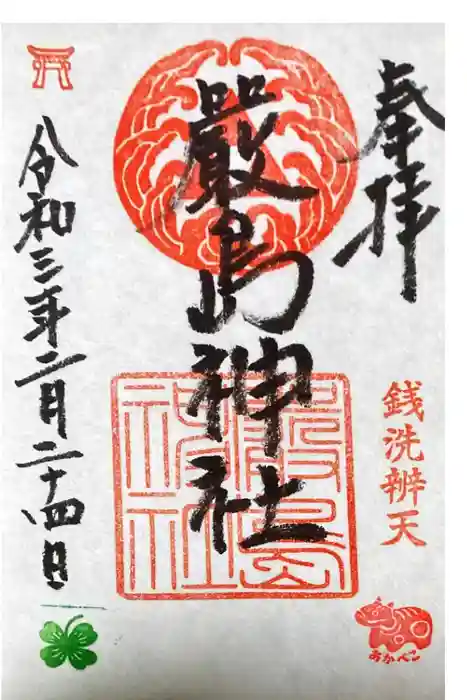 奉拝
銭洗辨天
あかべこ
嚴島神社
嚴島
神社
令和三年二月二十四日